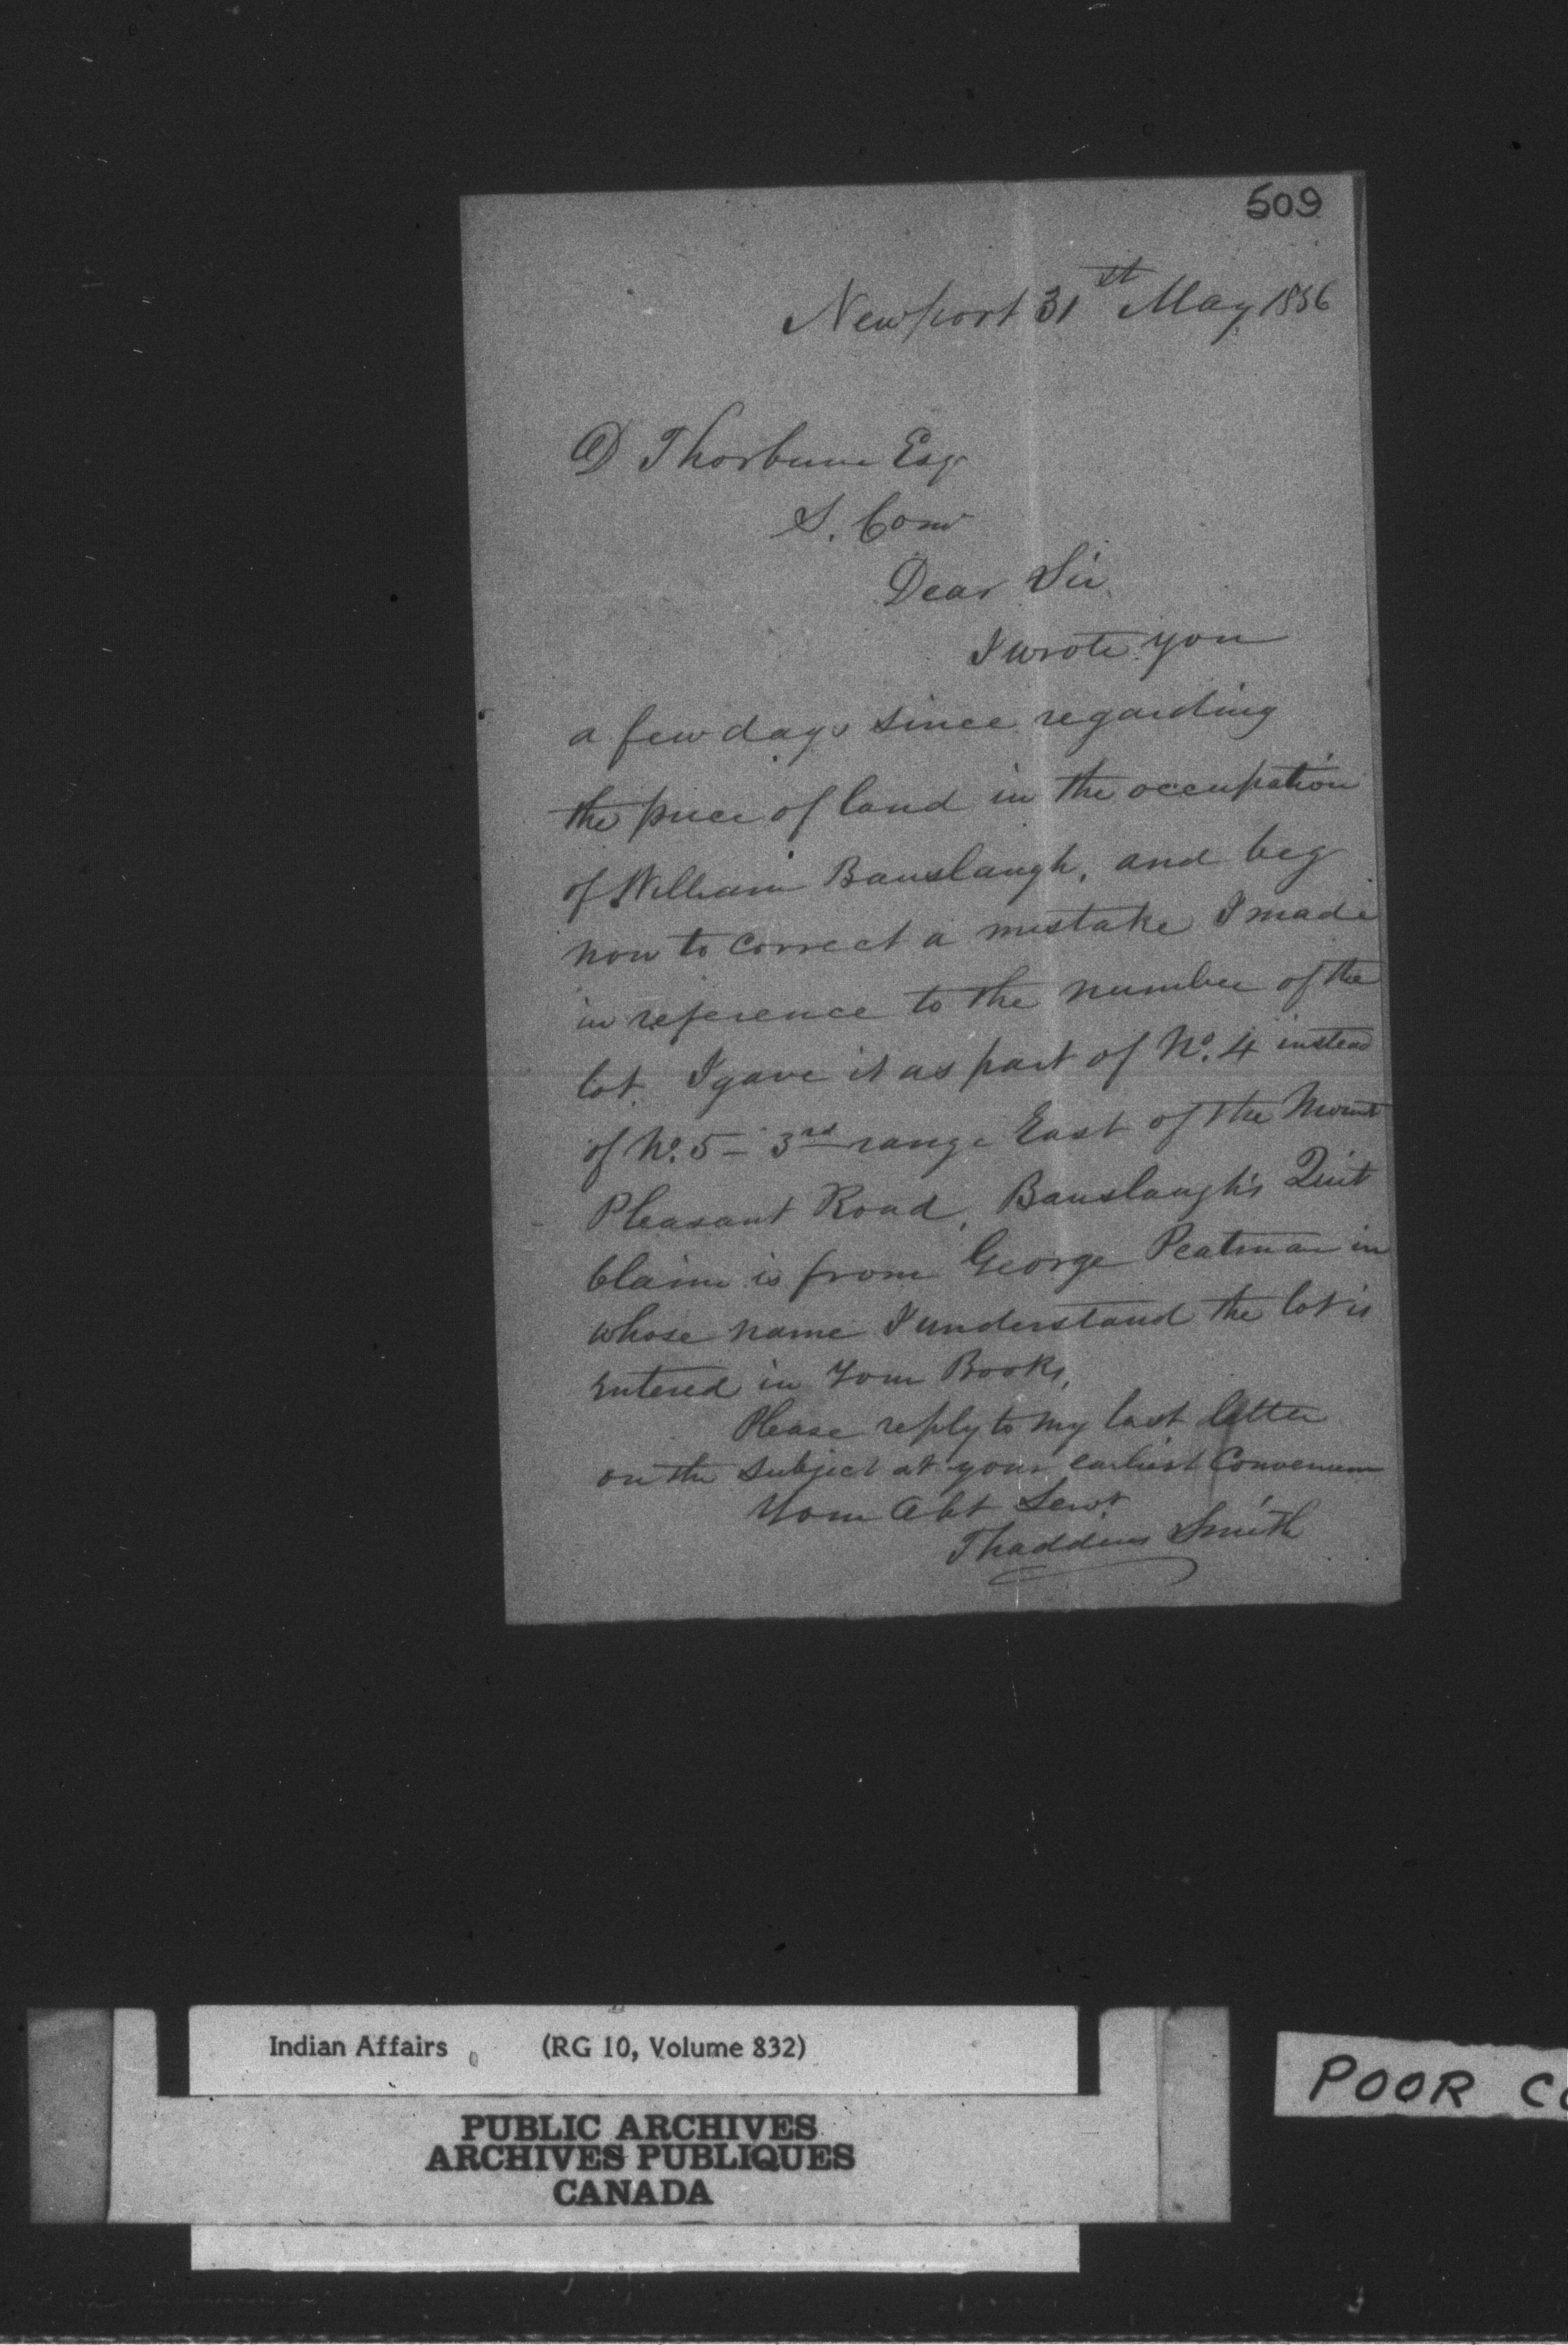 509
Newport 31st May 1856
D Thorburn Esqr
S. Comr
Dear Sir,
I wrote you
a few days since regarding
the price of land in the occupation
of William Bauslaugh, and beg
now to correct a mistake I made
in reference to the number of the
lot. I gave it as part of No. 4 instead
of No. 5 - 3rd range East of the Mount
Pleasant Road, Bauslaugh's Quit
Claim is from George Peatman in
whose name I understand the lot is
entered in Your Books,
Please reply to my last letter
on the subject at your earliest Convenience
Your Obt Servt
Thaddeus Smith
Indian Affairs (RG 10, Volume 832)
PUBLIC ARCHIVES
ARCHIVES PUBLIQUES
CANADA
POOR CO